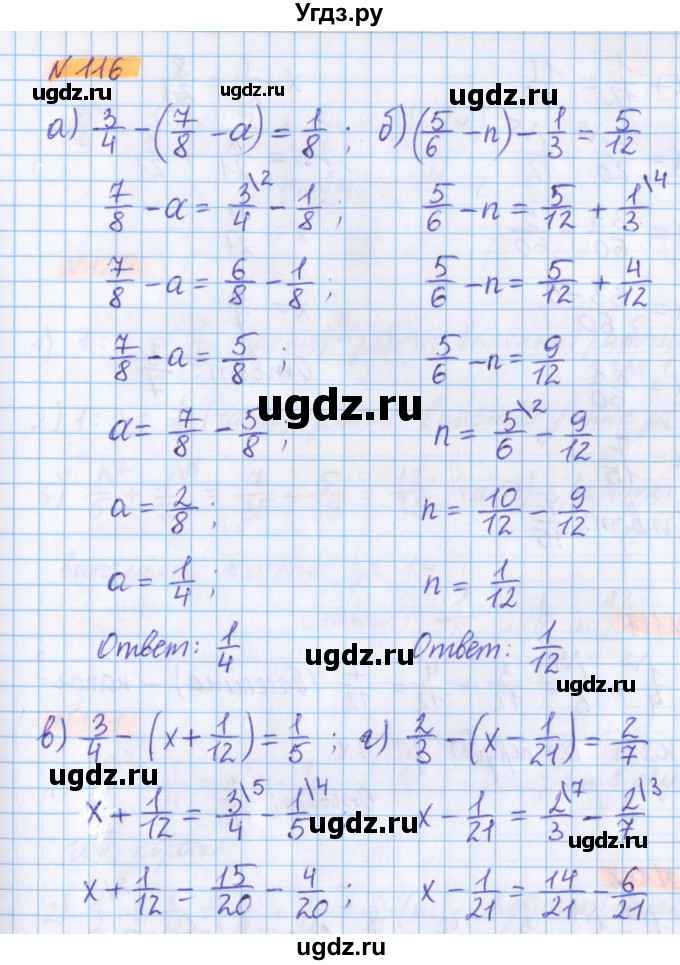 Угдз.ру
N 116
ugdz.ru ugdz.ru ugdz.ru
а) 3/4 − (7/8 − a) = 1/8 ; б) (5/6 − n) − 1/3 = 5/12
7/8 − a = 3\2/4 − 1/8 ; 5/6 − n = 5/12 + 1\4/3
7/8 − a = 6/8 − 1/8 ; 5/6 − n = 5/12 + 4/12
7/8 − a = 5/8 ; 5/6 − n = 9/12
ugdz.ru
a = 7/8 − 5/8 ; n = 5\2/6 − 9/12
a = 2/8 ; n = 10/12 − 9/12
a = 1/4 ; n = 1/12
Ответ: 1/4 Ответ: 1/12
ugdz.ru ugdz.ru
в) 3/4 − (x + 1/12) = 1/5 ; г) 2/3 − (x − 1/21) = 2/7
x + 1/12 = 3\5/4 − 1\4/5 x − 1/21 = 2\7/3 − 2\3/7
ugdz.ru ugdz.ru ugdz.ru
x + 1/12 = 15/20 − 4/20 ; x − 1/21 = 14/21 − 6/21
ugdz.ru